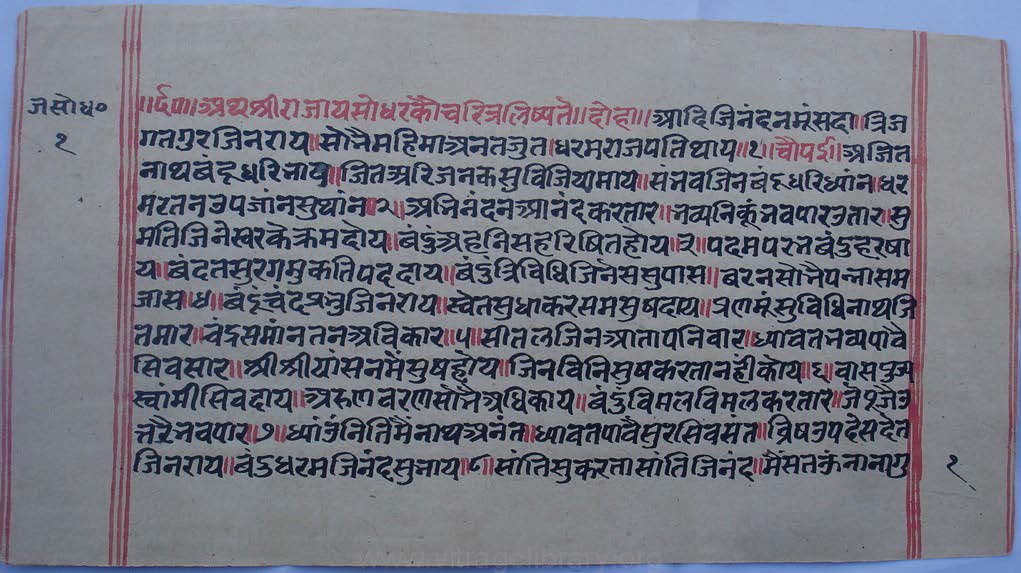 जसोध०
१
॥र्द०॥अथश्रीराजायसोधरकौचरित्रलिष्यते॥दोहा॥आदिजिनंदनमूंसदा॥त्रिज
गतगुरजिनराय॥सोनैमहिमाअनतजुत॥धरमराजपतिथाय॥१॥चौपई॥अजित
नाथबंदूधरिनाय॥जितअरिजनकसुविजियामाय॥संभवजिनबंदूधरिध्यांन॥धर
मरतनउपजांनसुथांन॥२॥अभिनंदनआनंदकरतार॥भव्यनिकूंभवपारउतार॥सु
मतिजिनेस्वरकेक्रमदोय॥बंदुंअहनिसहरिषितहोय॥३॥पदमपरभबंदुहरषा
य॥बंदतसुरगमुकतिपददाय॥बंदुंत्रिविधिजिनेससुपास॥बरनसोभैपन्नासम
जास॥४॥बंदूंचंदप्रभुजिनराय॥स्वेतसुधाकरसमसुषदाय॥प्रणमूंसुविधिनाथजि
तमार॥चंद्रसमांनतनअविकार॥५॥सीतलजिनआतापनिवार॥ध्यावतभव्यपावै
सिवसार॥श्रीश्रीयांसनमैंसुषहोय॥जिनविनिसुषकरतानहींकोय॥६॥वासपुज्य
स्वांमीसिवदाय॥अरुणवरणसोभैअधिकाय॥बंदुविमलविमलकरतार॥
भवपार॥७॥ध्यांउंनितिमैनाथअनंत॥ध्यावतपावैसुरसिवसंत॥व्रिषउपदेसदेत
जिनराय॥बंदुधरमजिनंदसुभाय॥८॥सांतिसुकरतासांतिजिनंद॥
१
www.vitragelibrary.org